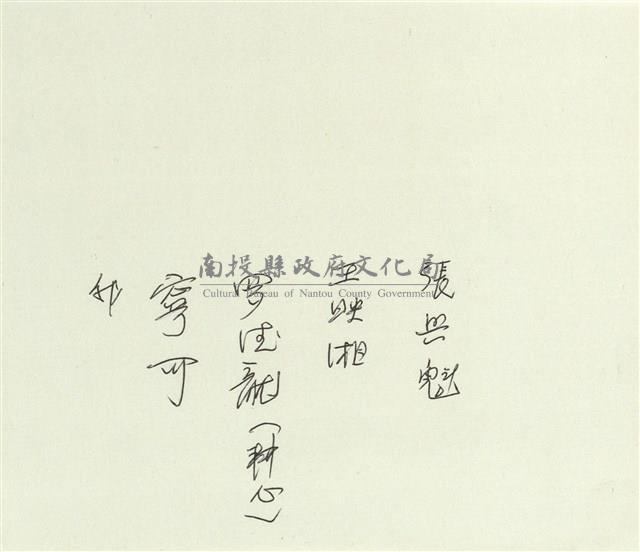 南投縣政府文化局
Cultural Bureau of Nantou County Government
張與魁
王映湘
罗德龍(耕心)
寧可